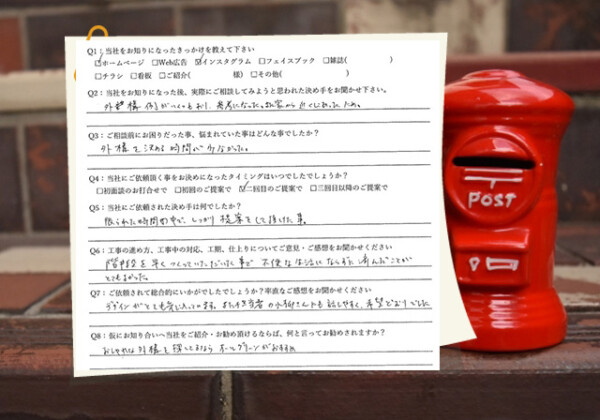 Q1：当社をお知りになったきっかけを教えて下さい
☑ホームページ □Web広告 ☑インスタグラム □フェイスブック □雑誌( )
□チラシ □看板 □ご紹介( 様) □その他( )
Q2：当社をお知りになった後、実際にご相談してみようと思われた決め手をお聞かせ下さい。
Q3：ご相談前にお困りだった事、悩まれていた事はどんな事でしたか？
外構を決める時間が少なかった。
Q4：当社にご依頼頂く事をお決めになったタイミングはいつでしたでしょうか？
□初面談のお打合せで □初回のご提案で ☑二回目のご提案で □三回目以降のご提案で
Q5：当社にご依頼された決め手は何でしたか？
限られた時間の中で、しっかり提案をして頂けた事。
Q6：工事の進め方、工事中の対応、工期、仕上りについてご意見・ご感想をお聞かせください
階段を早くつくっていただいた事で 不便な生活にならずに済んだことが
とてもよかった。
Q7：ご依頼されて総合的にいかがでしたでしょうか？率直なご感想をお聞かせください
デザインがとても気に入っています。また担当者の も話しやすく、希望どおりでした
Q8：仮にお知り合いへ当社をご紹介・お勧め頂けるならば、何と言ってお勧めされますか？
おしゃれな外構を探してるなら オールグリーンがおすすめ
POST